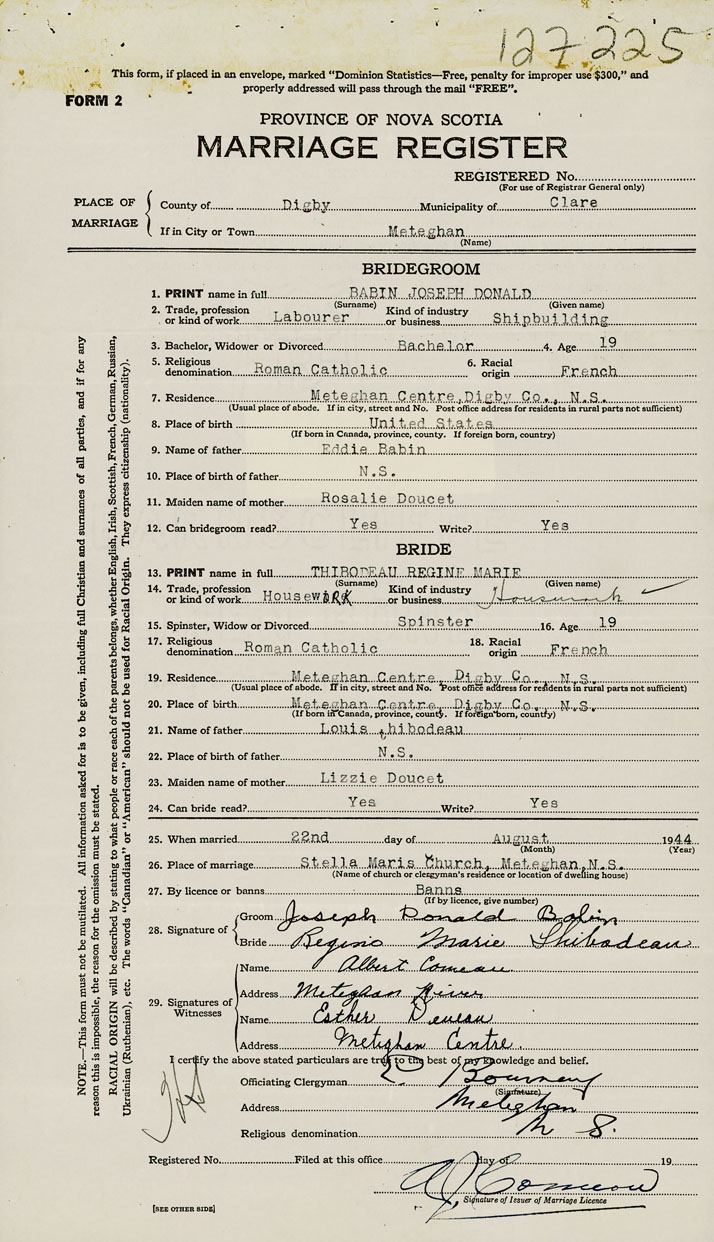 127225
This form, if placed in an envelope, marked "Dominion Statistics—Free, penalty for improper use $300," and
properly addressed will pass through the mail "FREE".
FORM 2
PROVINCE OF NOVA SCOTIA
MARRIAGE REGISTER
REGISTERED No.
(For use of Registrar General only)
PLACE OF MARRIAGE
County of Digby Municipality of Clare
If in City or Town Meteghan
(Name)
BRIDEGROOM
1. PRINT name in full BABIN JOSEPH DONALD
(Surname) (Given name)
2. Trade, profession or kind of work Labourer Kind of industry or business Shipbuilding
3. Bachelor, Widower or Divorced Bachelor 4. Age 19
5. Religious denomination Roman Catholic 6. Racial origin French
7. Residence Meteghan Centre, Digby Co., N.S.
(Usual place of abode. If in city, street and No. Post office address for residents in rural parts not sufficient)
8. Place of birth United States
(If born in Canada, province, county. If foreign born, country)
9. Name of father Eddie Babin
10. Place of birth of father N.S.
11. Maiden name of mother Rosalie Doucet
12. Can bridegroom read? Yes Write? Yes
BRIDE
13. PRINT name in full THIBODEAU REGINE MARIE
(Surname) (Given name)
14. Trade, profession or kind of work HousewORK Kind of industry or business Housework
15. Spinster, Widow or Divorced Spinster 16. Age 19
17. Religious denomination Roman Catholic 18. Racial origin French
19. Residence Meteghan Centre, Digby Co., N.S.
(Usual place of abode. If in city, street and No. Post office address for residents in rural parts not sufficient)
20. Place of birth Meteghan Centre, Digby Co., N.S.
(If born in Canada, province, county. If foreign born, country)
21. Name of father Louis thibodeau
22. Place of birth of father N.S.
23. Maiden name of mother Lizzie Doucet
24. Can bride read? Yes Write? Yes
25. When married 22nd day of August 1944
(Month) (Year)
26. Place of marriage Stella Maris Church, Meteghan, N.S.
(Name of church or clergyman's residence or location of dwelling house)
27. By licence or banns Banns
(If by licence, give number)
28. Signature of Groom Joseph Donald Babin
Bride Regine Marie Thibodeau
29. Signatures of Witnesses
Name Albert Comeau
Address Meteghan River
Name Esther Deveau
Address Meteghan Centre
I certify the above stated particulars are true to the best of my knowledge and belief.
Officiating Clergyman
(Signature)
Address Meteghan
N S.
Religious denomination
Registered No. Filed at this office day of 19
Comeau
Signature of Issuer of Marriage Licence
[SEE OTHER SIDE]
NOTE.—This form must not be mutilated. All information asked for is to be given, including full Christian and surnames of all parties, and if for any
reason this is impossible, the reason for the omission must be stated.
RACIAL ORIGIN will be described by stating to what people or race each of the parents belongs, whether English, Irish, Scottish, French, German, Russian,
Ukrainian (Ruthenian), etc. The words "Canadian" or "American" should not be used for Racial Origin. They express citizenship (nationality).